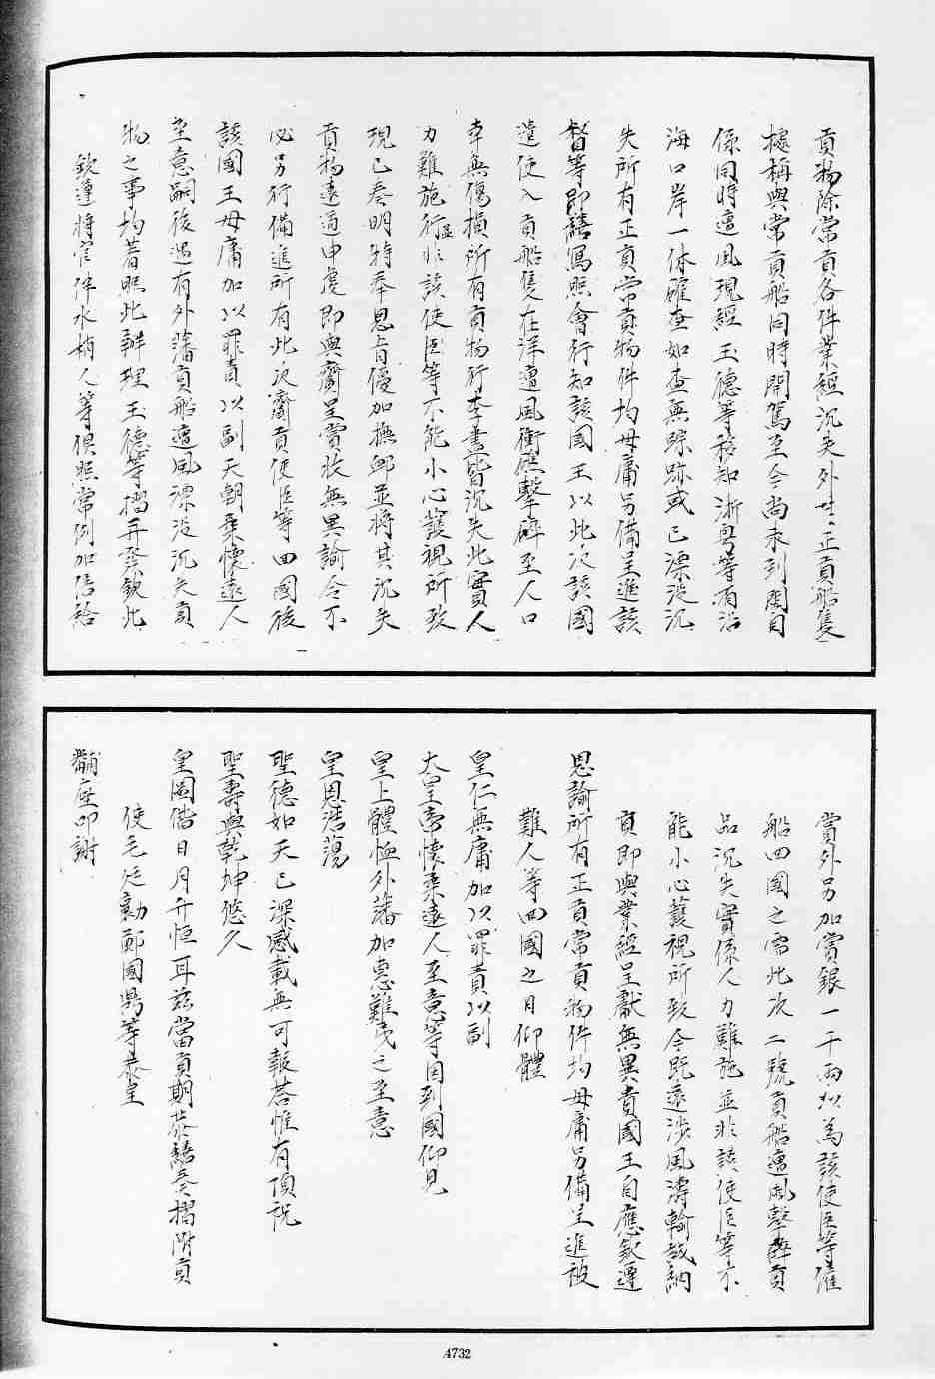 貢物除常貢各件業經沉失外其正貢船隻
據稱與常貢船同時開駕至今尚未到閩自
係同時遭風現經玉德等移知浙粵等省沿
海口岸一体確查如查無踪跡或已漂没沉
失所有正貢常貢物件均毋庸另備呈進該
督等即繕寫照會行知該國王以此次該國
遣使入貢船隻在洋遭風衝礁擊碎至人口
幸無傷損所有貢物行李盡皆沉失此實人
力難施行並非該使臣等不能小心護視所致
現已奏明特奉恩旨優加撫卹並將其沉失
貢物遠道申虔即與齎呈賞收無異諭令不
必另行備進所有此次齎貢使臣等回國後
該國王毋庸加以罪責以副天朝柔懷遠人
至意嗣後遇有外藩貢船遭風漂没沉失貢
物之事均着照此辦理玉德等摺并發欽此
欽遵將官伴水梢人等俱照常例加倍給
賞外另加賞銀一千兩以為該使臣等僱
船回國之需此次二號貢船遭風擊碎貢
品沉失實係人力難施並非該使臣等不
能小心護視所致今既遠涉風濤輸誠納
貢即與業經呈獻無異貴國王自應欽遵
恩諭所有正貢常貢物件均毋庸另備呈進被
難人等回國之日仰體
皇仁無庸加以罪責以副
大皇帝懷柔遠人至意等因到國仰見
皇上體恤外藩加惠難夷之至意
皇恩浩蕩
聖德如天已深感載無可報荅惟有頂祝
聖壽與乾坤悠久
皇圖偕日月升恒耳茲當貢期恭繕奏摺附貢
使毛廷勷鄭國鼎等恭呈
黼座叩謝
4732